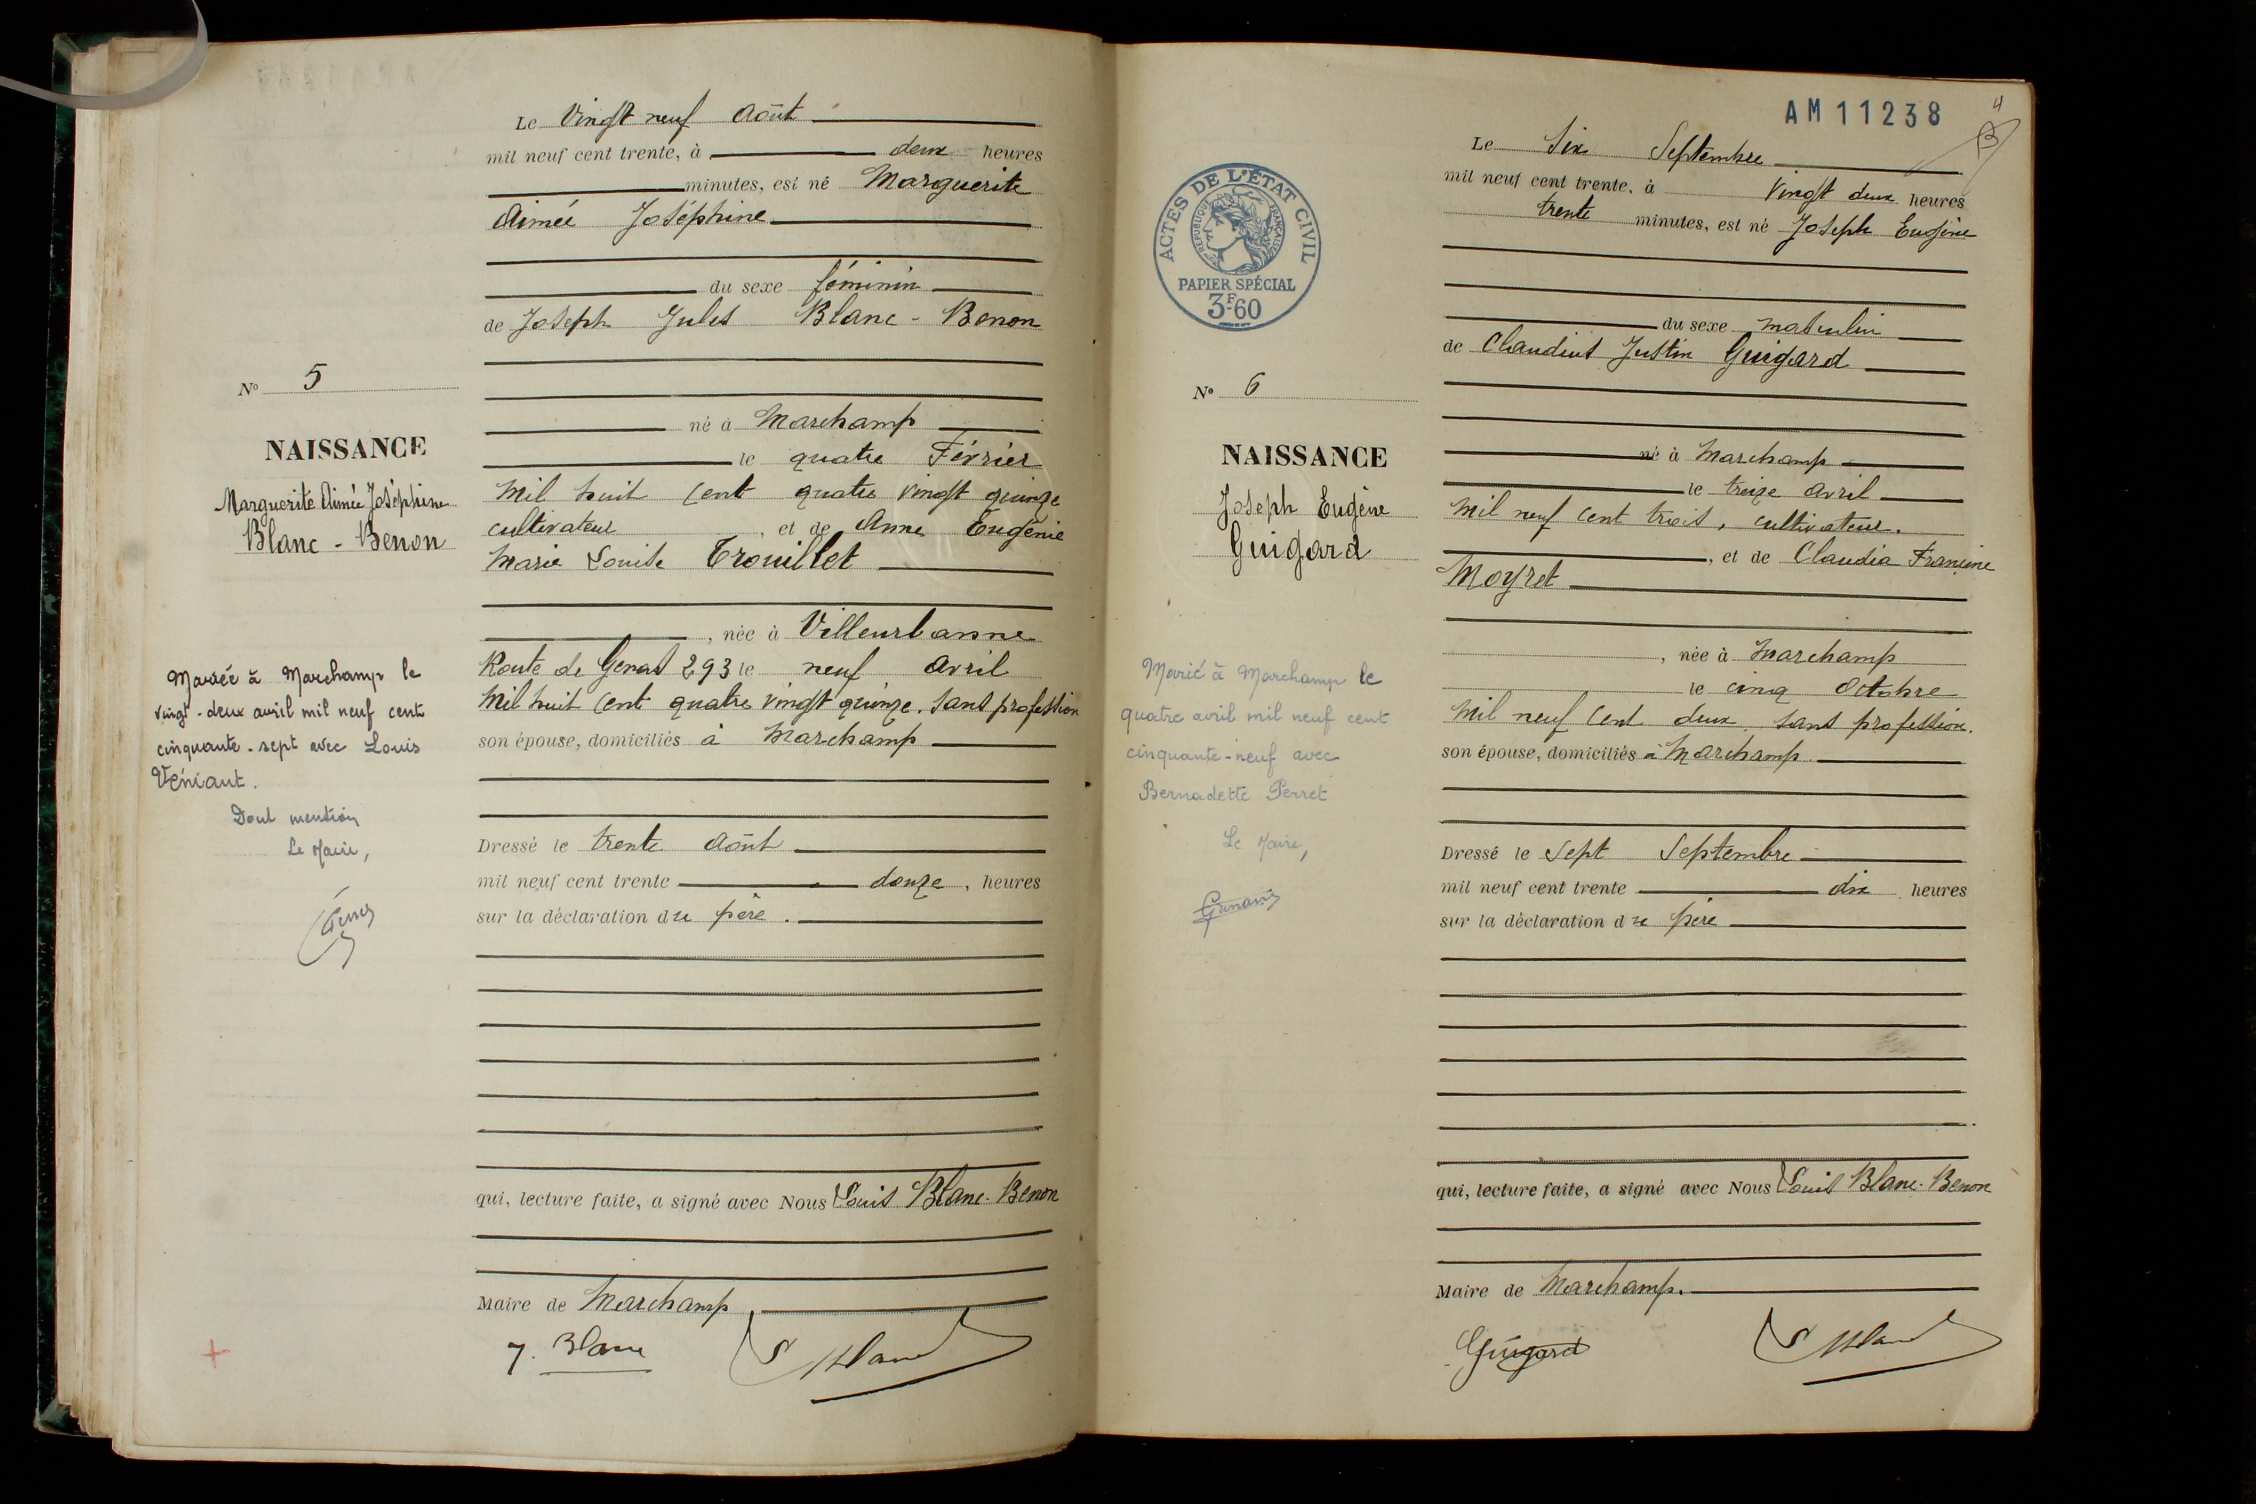 Le Vingt neuf Août
mil neuf cent trente, à deux heures
minutes, est né Marguerite
Aimée Joséphine
du sexe féminin
de Joseph Jules Blanc - Benon
né à Marchamp
le quatre Février
Mil huit Cent quatre vingt quinze
cultivateur, et de Anne Eugénie
Marie Louise Trouillet
, née à Villeurbanne
Route de Genas 293 le neuf Avril
Mil huit Cent quatre vingt quinze. sans profession
son épouse, domiciliés à Marchamp
Dressé le trente Août
mil neuf cent trente douze, heures
sur la déclaration du père.
qui, lecture faite, a signé avec Nous Louis Blanc-Benon
Maire de Marchamp
J. Blanc
L Blanc
No 5
NAISSANCE
Marguerite Aimée Joséphine
Blanc - Benon
Mariée à Marchamp le
vingt-deux avril mil neuf cent
cinquante-sept avec Louis
Véniant.
Dont mention
Le Maire,
AM11238
4
Le Six Septembre
mil neuf cent trente, à Vingt deux heures
trente minutes, est né Joseph Eugène
du sexe masculin
de Claudius Justin Guigard
né à Marchamp
le treize Avril
Mil neuf Cent trois, cultivateur.
, et de Claudia Francine
Moyret
, née à Marchamp
le cinq Octobre
Mil neuf Cent deux, sans profession.
son épouse, domiciliés à Marchamp
Dressé le Sept Septembre
mil neuf cent trente dix heures
sur la déclaration du père
qui, lecture faite, a signé avec Nous Louis Blanc-Benon
Maire de Marchamp.
Guigard
L Blanc
ACTES DE L'ÉTAT CIVIL
RÉPUBLIQUE FRANÇAISE
PAPIER SPÉCIAL
3F60
No 6
NAISSANCE
Joseph Eugène
Guigard
Marié à Marchamp le
quatre avril mil neuf cent
cinquante-neuf avec
Bernadette Perret
Le Maire,